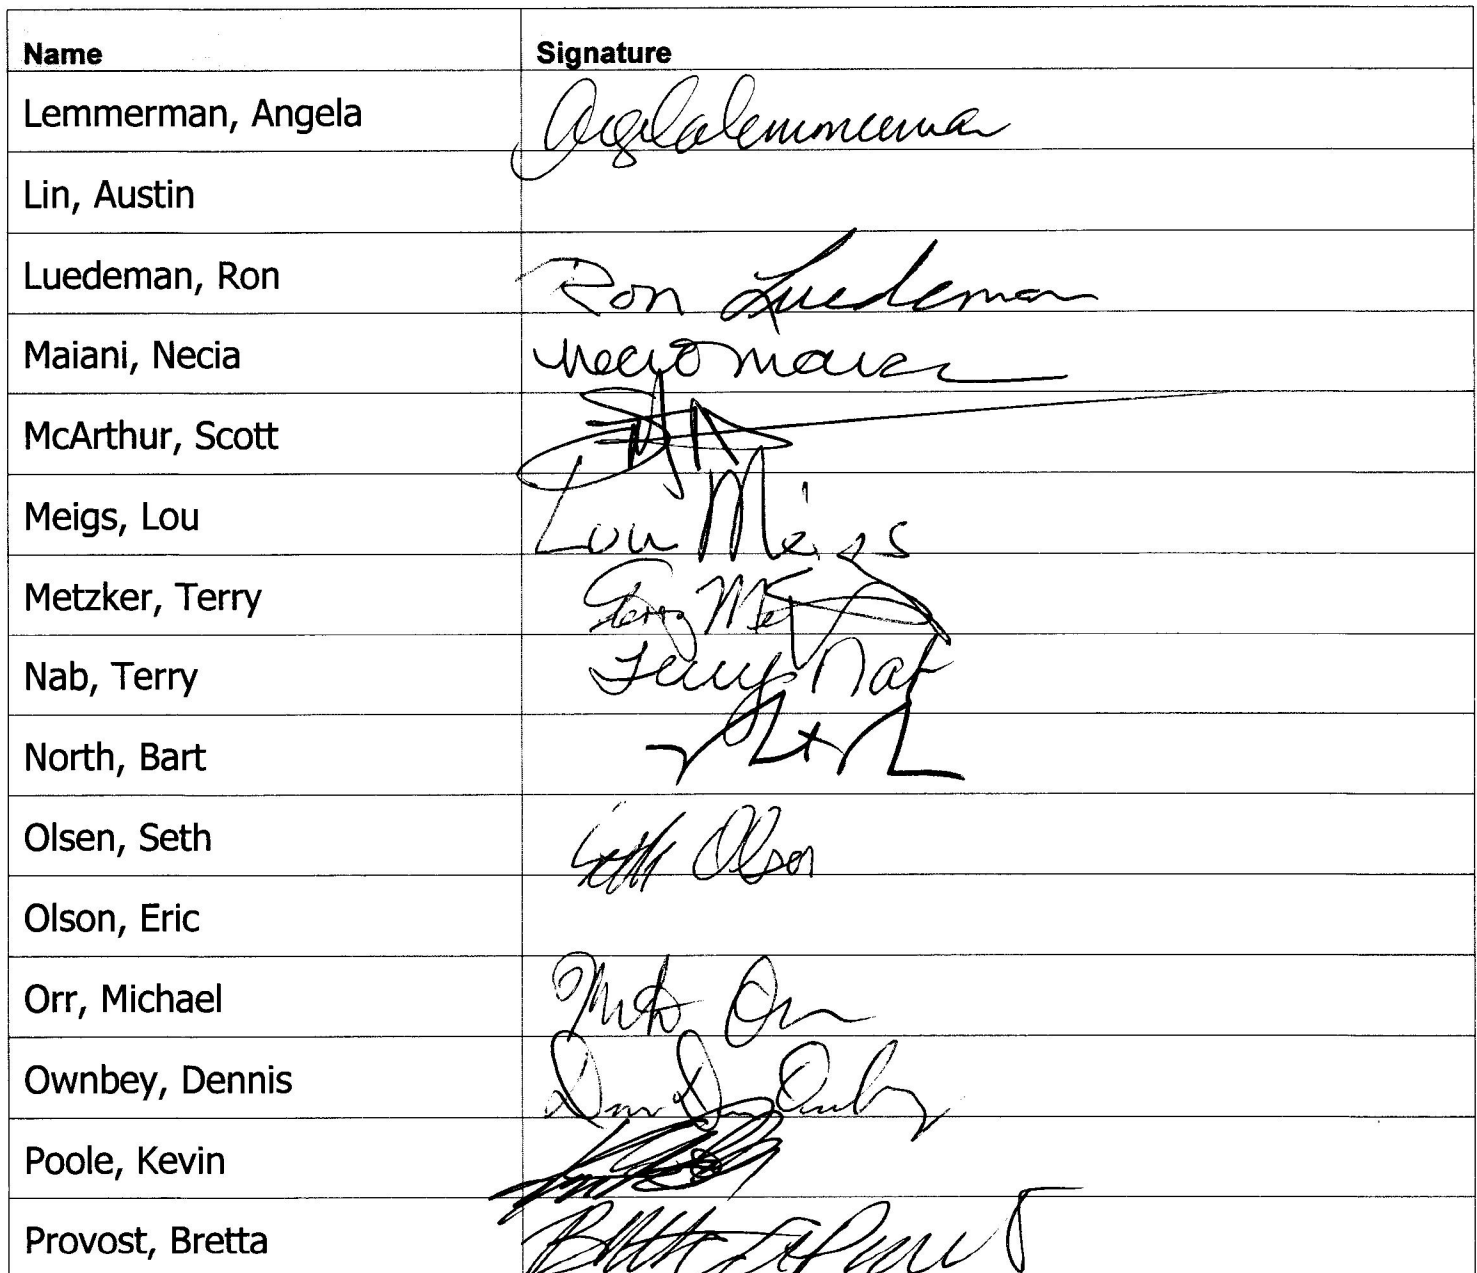 Name Signature
Lemmerman, Angela Angela Lemmerman
Lin, Austin
Luedeman, Ron Ron Luedeman
Maiani, Necia Necia
McArthur, Scott
Meigs, Lou Lou Meigs
Metzker, Terry Terry
Nab, Terry Terry Nab
North, Bart
Olsen, Seth Seth Olsen
Olson, Eric
Orr, Michael Orr
Ownbey, Dennis Ownbey
Poole, Kevin
Provost, Bretta